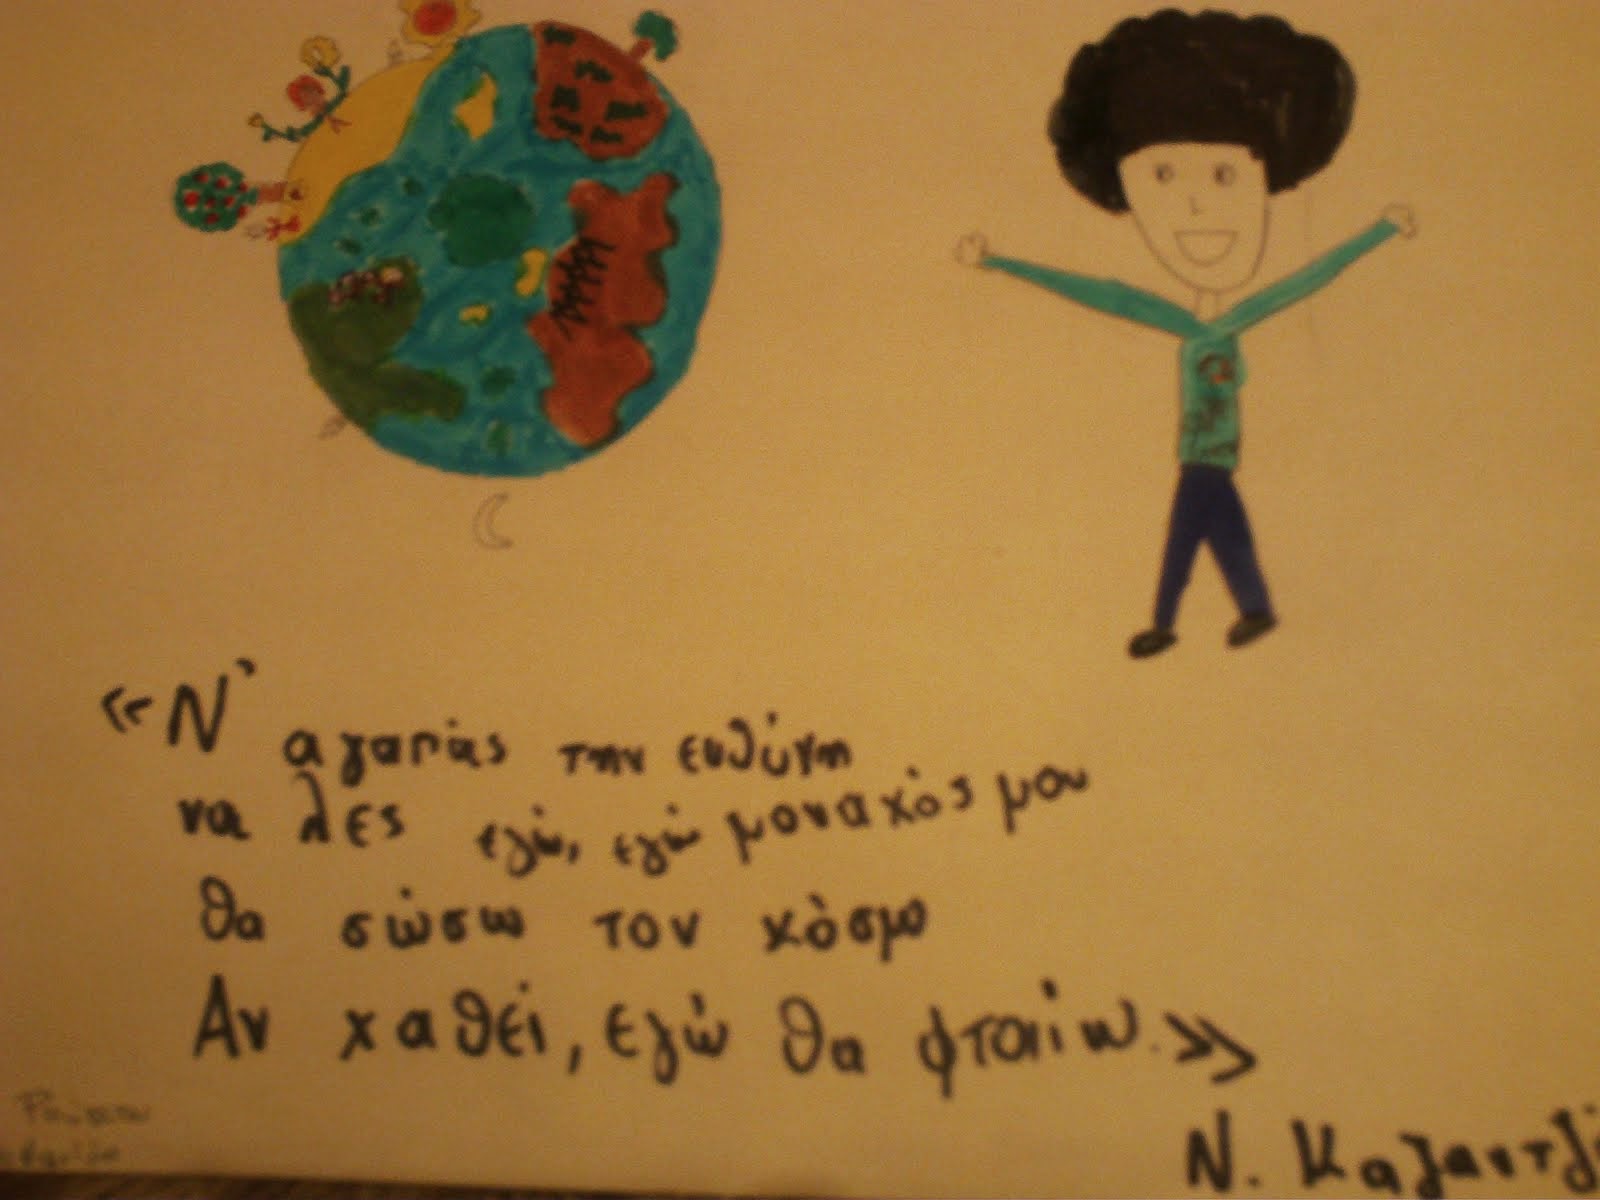 «Ν' αγαπάς την ευθύνη
να λες εγώ, εγώ μοναχός μου
θα σώσω τον κόσμο
Αν χαθεί, εγώ θα φταίω.»
Ν. Καζαντζ